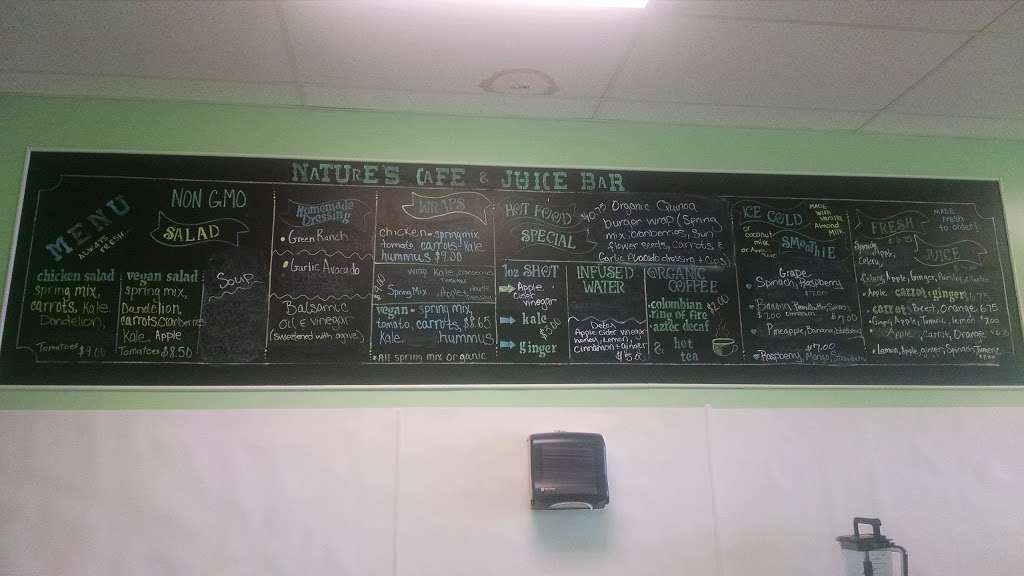 NATURE'S CAFE & JUICE BAR
MENU
ALWAYS
FRESH
NON GMO
SALAD
chicken salad
spring mix,
carrots, Kale,
Dandelion,
Tomatoes $9.00
vegan salad
spring mix,
Dandelion,
carrots, Cranberries
Kale, Apple
Tomatoes $8.50
SOUP
Homemade
Dressing
• Green Ranch
• Garlic Avocado
Balsamic
Oil & vinegar
(sweetened with agave)
WRAPS
chicken - spring mix
tomato, carrots, Kale
hummus $9.30
Kale, cranberries
Spring Mix, Apple,
vegan - spring mix,
tomato, carrots, $8.65
kale, hummus
• All spring mix organic
HOT FOOD
SPECIAL
Organic Quinoa
burger wrap (Spring
mix, cranberries, Sun
flower seeds, carrots &
Garlic Avocado dressing
1oz SHOT
Apple
Cider
Vinegar
kale
$3.00
ginger
INFUSED
WATER
Detox
Apple cider vinegar
honey, Lemon,
cinnamon & ginger
ORGANIC
COFFEE
$2.00
.colombian
.ring of fire
.aztec decaf
& hot
tea
ICE COLD
SMOOTHIE
MADE
WITH
Almond
MILK
or
coconut
milk
or
Grape
Spinach, Raspberry
$7.00
Banana,
Pineapple, Banana,
$7.00
• Raspberry, Mango, Strawberry
FRESH
JUICE
MADE
FRESH
to order!
Apple,
Celery,
Apple, Ginger,
• Apple carrot • ginger 6.75
• carrot Beet, Orange 6.75
Apple, Turmeric, lemon
Apple, Carrot, Orange
• Lemon, Apple, ginger, Spinach, Turmeric